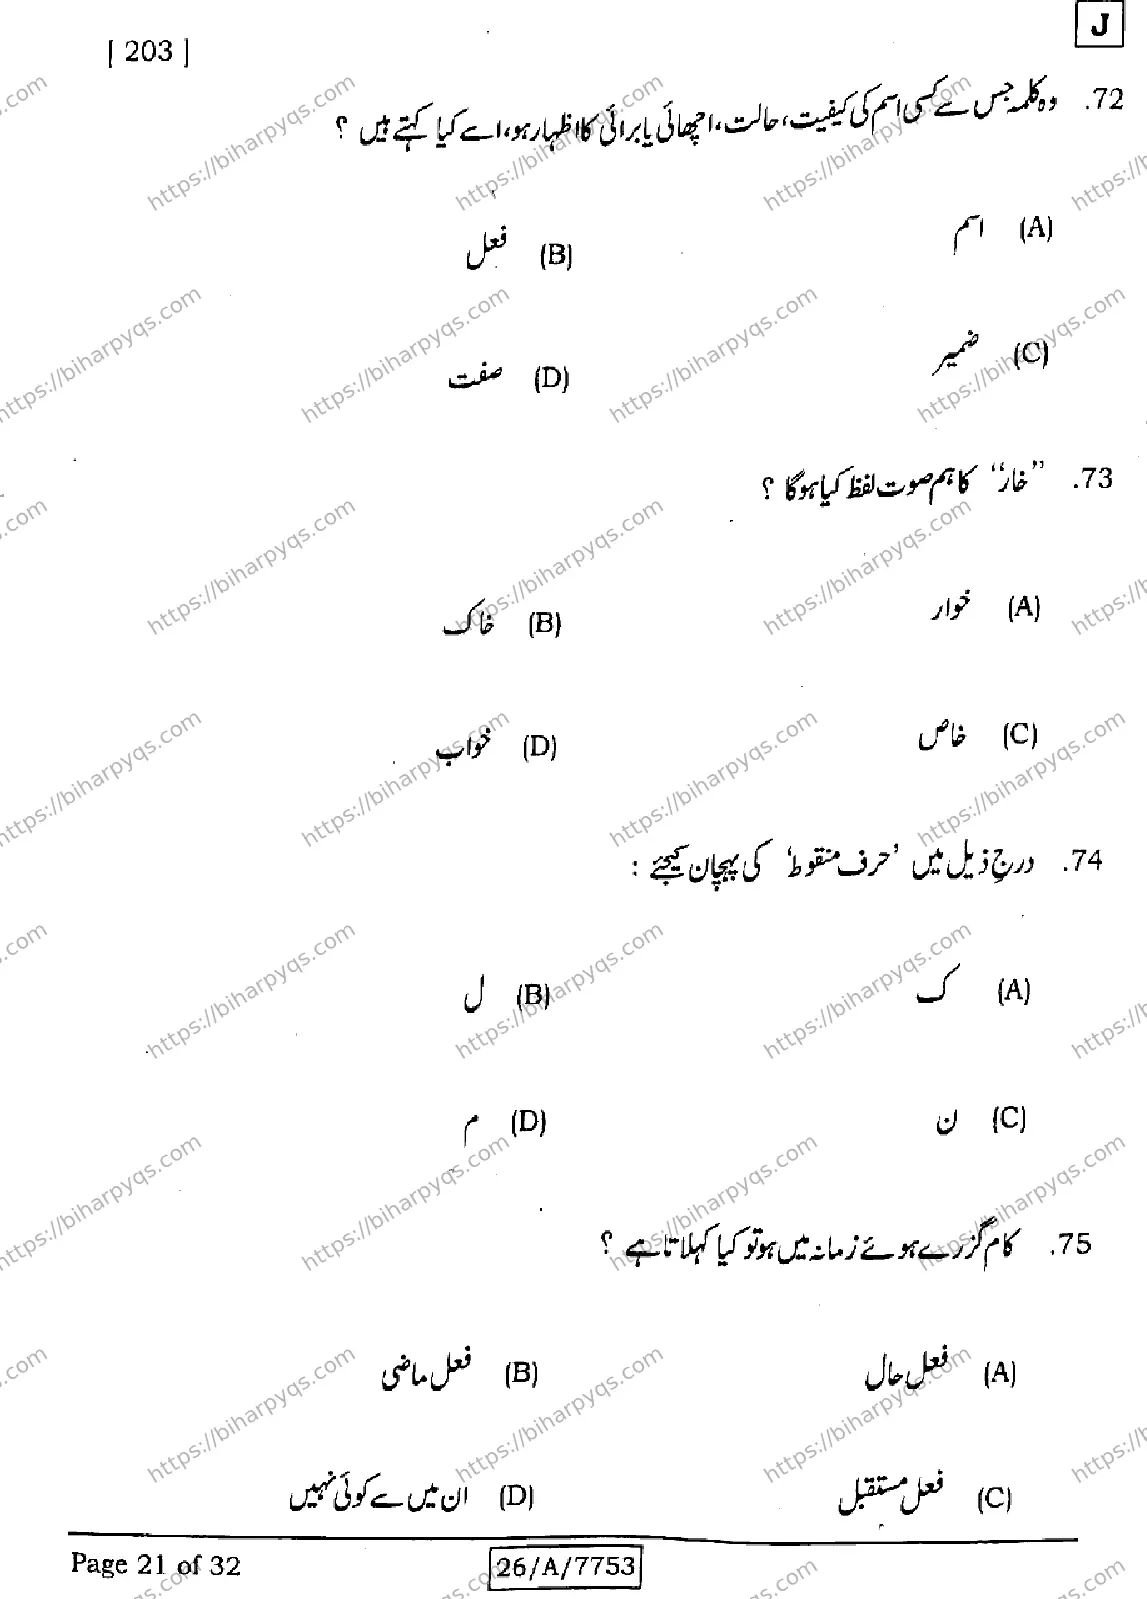 [ 203 ]
J
72. وہ کلمہ جس سے کسی اسم کی کیفیت، حالت، اچھائی یا برائی کا اظہار ہو، اسے کیا کہتے ہیں ؟
(A) اسم
(B) فعل
(C) ضمیر
(D) صفت
73. ”خار“ کا ہم صوت لفظ کیا ہوگا ؟
(A) خوار
(B) خاک
(C) خاص
(D) خواب
74. درج ذیل میں ’حرف منقوط‘ کی پہچان کیجئے :
(A) ک
(B) ل
(C) ن
(D) م
75. کام گزرے ہوئے زمانہ میں ہو تو کیا کہلاتا ہے ؟
(A) فعل حال
(B) فعل ماضی
(C) فعل مستقبل
(D) ان میں سے کوئی نہیں
Page 21 of 32
26/A/7753
https://biharpyqs.com